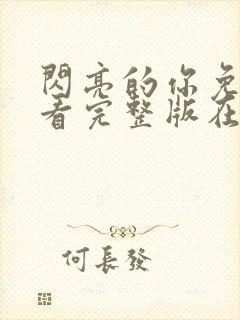 閃亮的你免
看完整版在
何長發